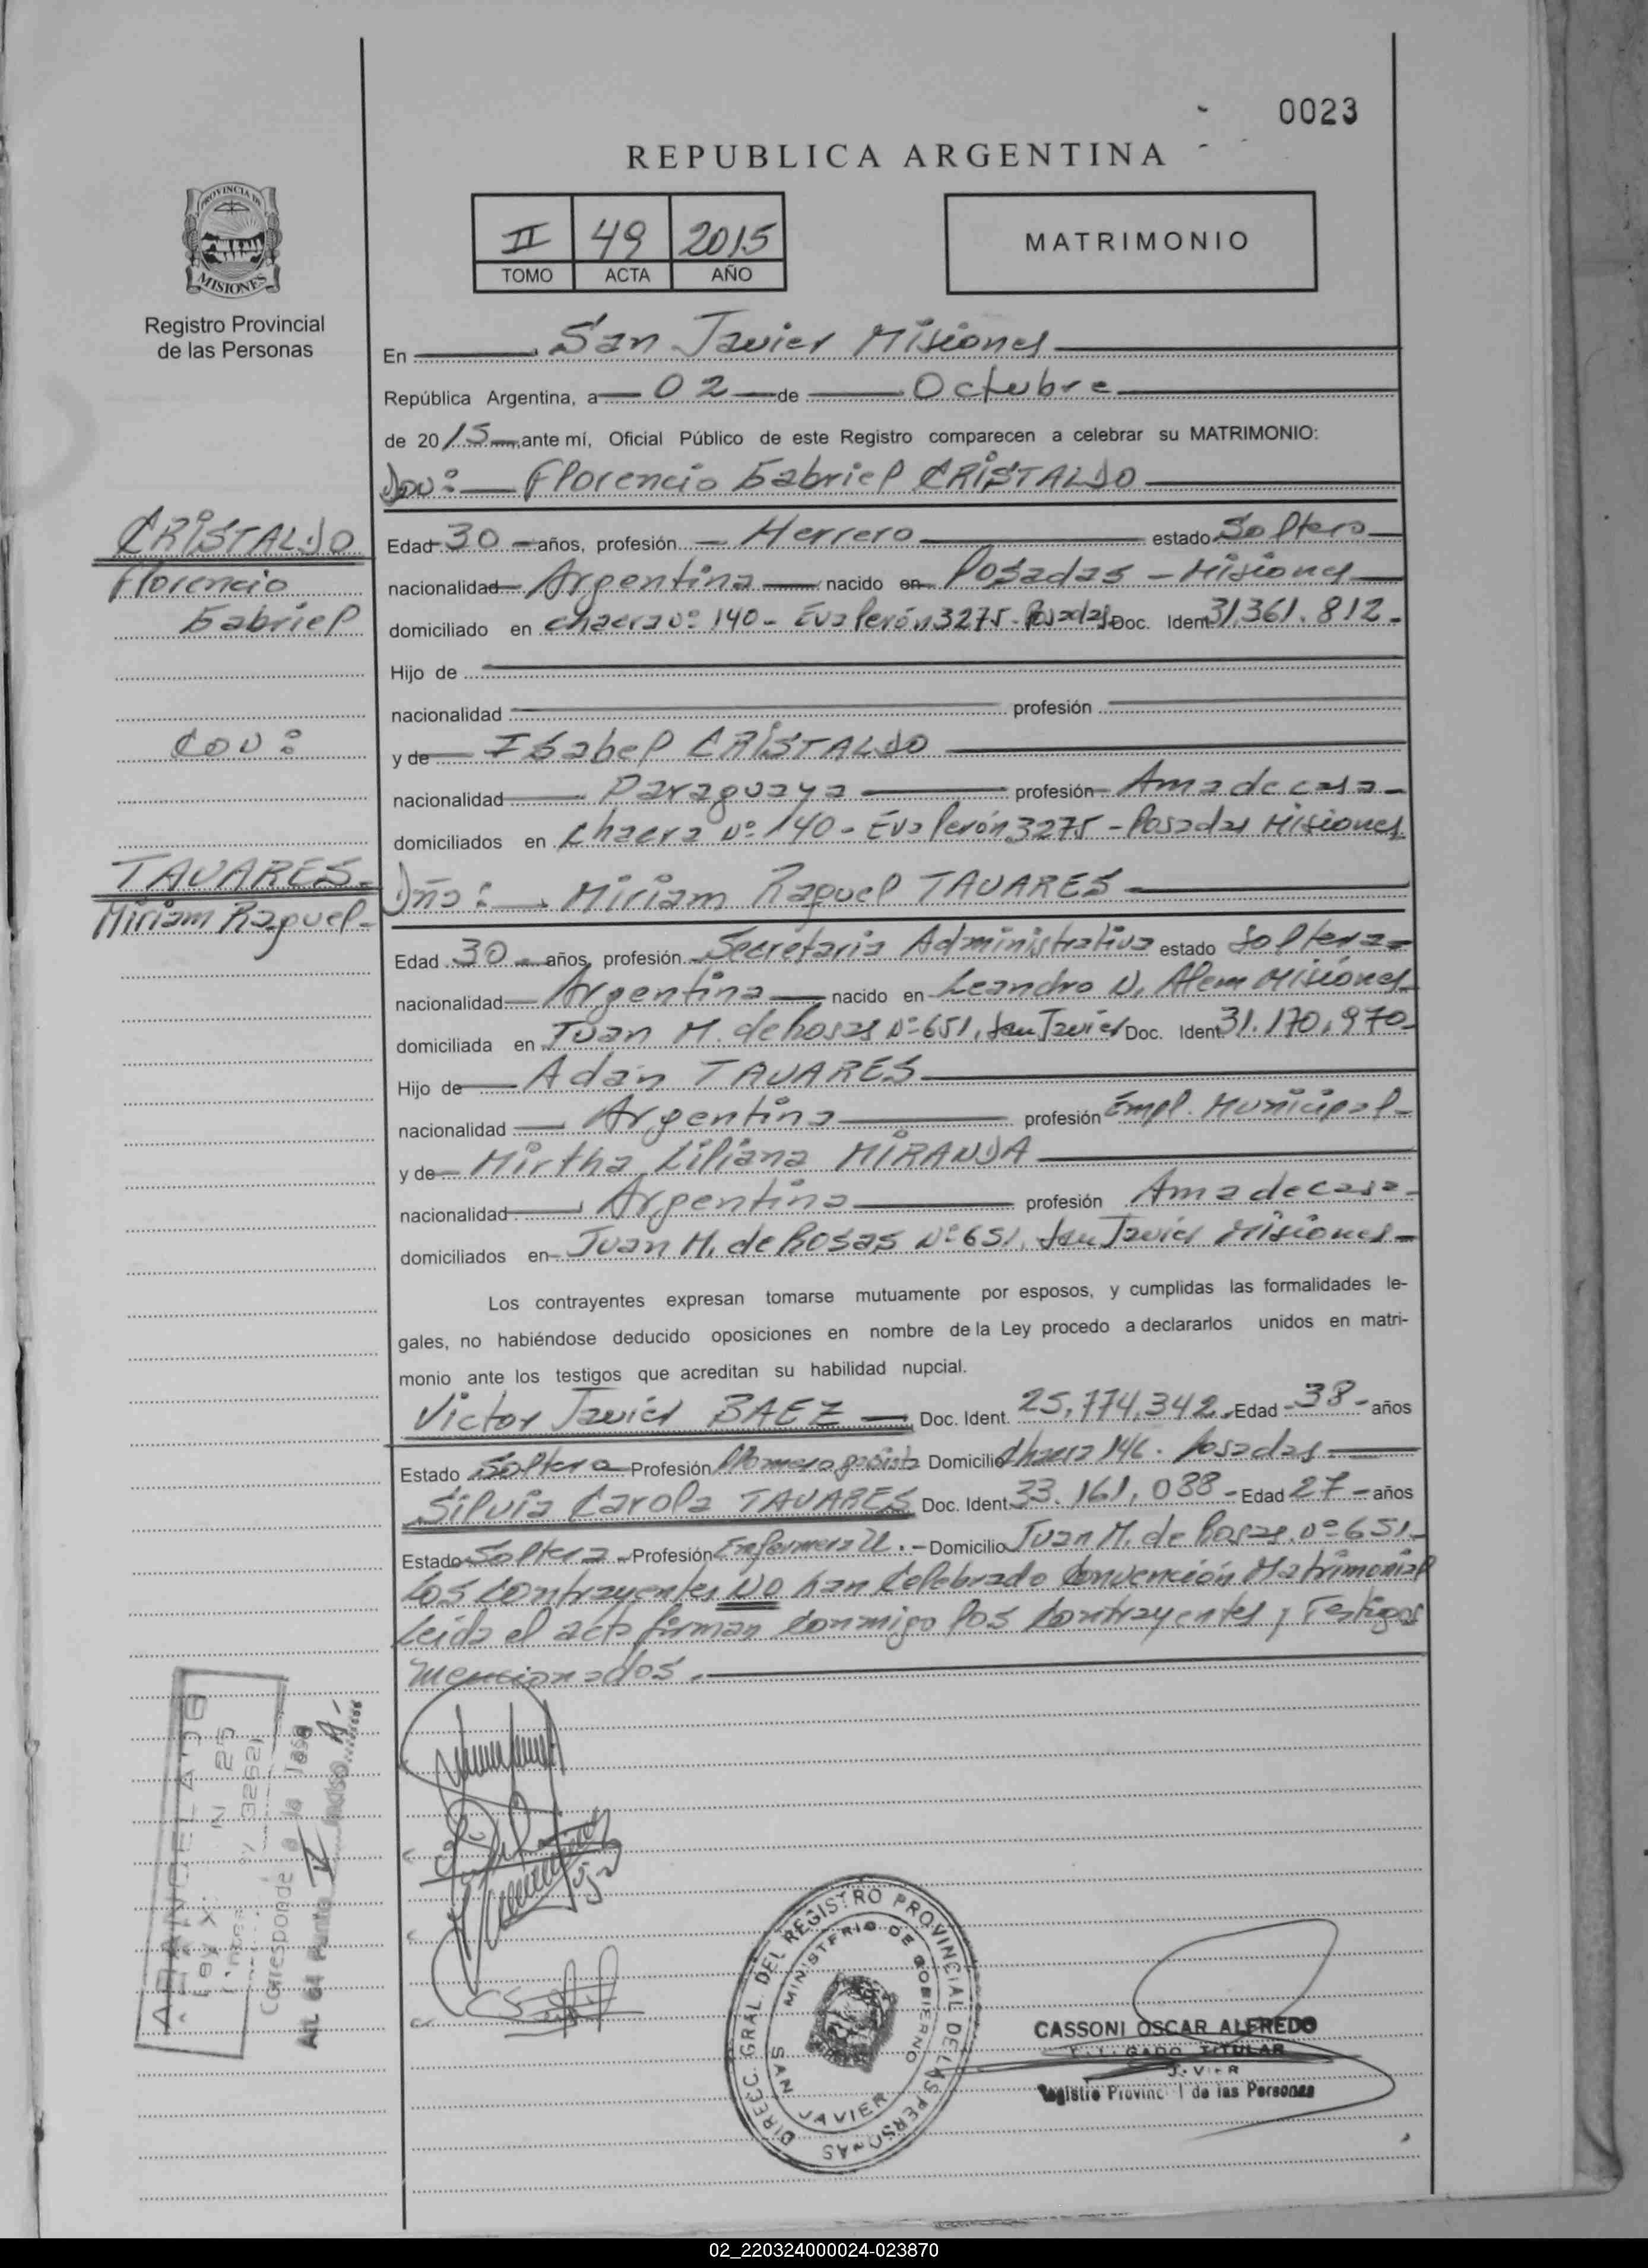 0023
REPUBLICA ARGENTINA
PROVINCIA DE
MISIONES
Registro Provincial
de las Personas
II 49 2015
TOMO ACTA AÑO
MATRIMONIO
En San Javier Misiones
República Argentina, a 02 de Octubre
de 2015 ante mí, Oficial Público de este Registro comparecen a celebrar su MATRIMONIO:
Don: Florencio Gabriel CRISTALDO
CRISTALDO
Florencio
Gabriel
Con:
TAVARES
Miriam Raquel
Edad 30 años, profesión Herrero estado Soltero
nacionalidad Argentina nacido en Posadas - Misiones
domiciliado en chacra nº 140 - Eva Perón 3275 - Posadas Doc. Ident 31.361.812
Hijo de
nacionalidad profesión
y de Isabel CRISTALDO
nacionalidad Paraguaya profesión Ama de casa
domiciliados en Chacra nº 140 - Eva Perón 3275 - Posadas Misiones
Dña: Miriam Raquel TAVARES
Edad 30 años, profesión Secretaria Administrativa estado Soltera
nacionalidad Argentina nacido en Leandro N. Alem Misiones
domiciliada en Juan M. de Rosas Nº 651, San Javier Doc. Ident. 31.170.970
Hijo de Adán TAVARES
nacionalidad Argentina profesión Empl. Municipal
y de Mirtha Liliana MIRANDA
nacionalidad Argentina profesión Ama de casa
domiciliados en Juan M. de Rosas Nº 651, San Javier Misiones
Los contrayentes expresan tomarse mutuamente por esposos, y cumplidas las formalidades le-
gales, no habiéndose deducido oposiciones en nombre de la Ley procedo a declararlos unidos en matri-
monio ante los testigos que acreditan su habilidad nupcial.
Victor Javier BAEZ Doc. Ident. 25.774.342 Edad 38 años
Estado Soltero Profesión Domicilio Chacra 146. Posadas
Silvia Carola TAVARES Doc. Ident. 33.161.088 Edad 27 años
Estado Soltera Profesión Domicilio Juan M. de Rosas nº 651
Los contrayentes NO han Celebrado Convención Matrimonial
Leida el acta firman conmigo los Contrayentes y Testigos
mencionados.
ARANCELADO
Ley X
Corresponde
DIRECC. GRAL. DEL REGISTRO PROVINCIAL DE LAS PERSONAS
MINISTERIO DE GOBIERNO
SAN JAVIER
CASSONI OSCAR ALFREDO
TITULAR
Registro Provincial de las Personas
02_220324000024-023870